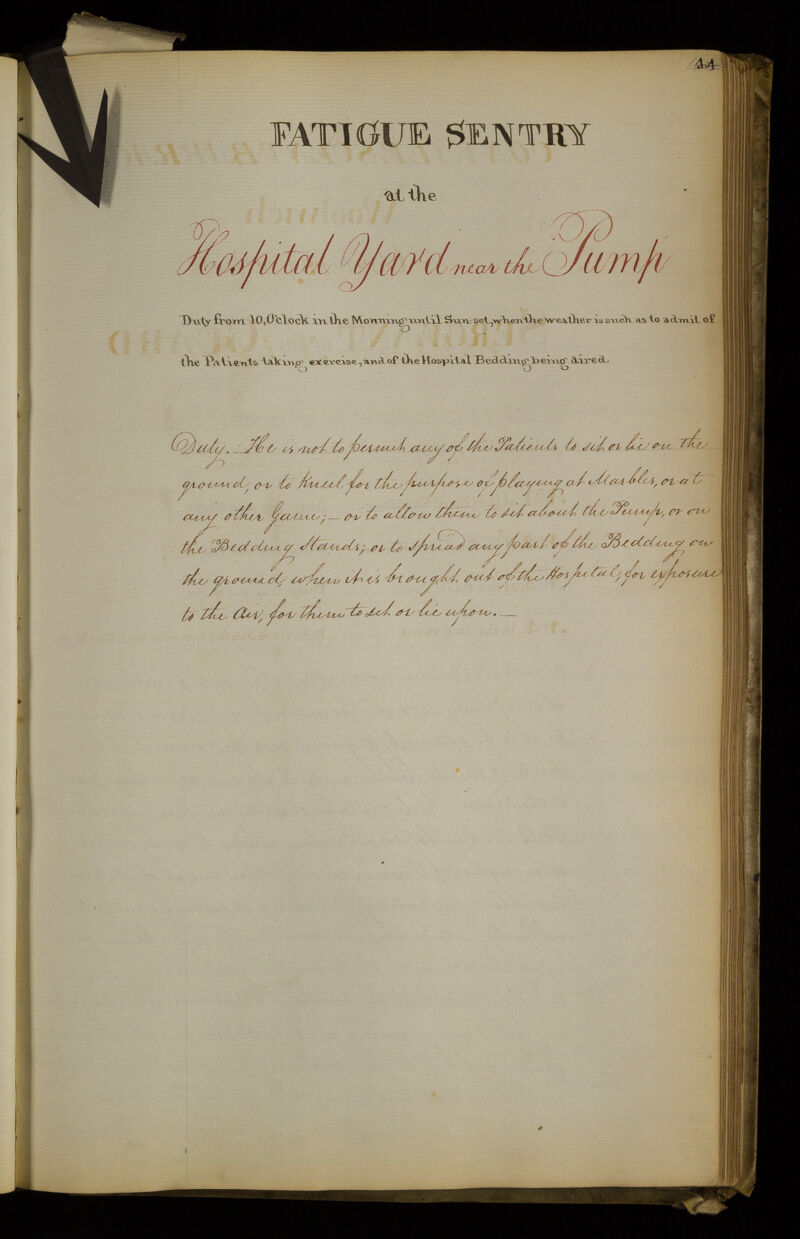 44
FATIGUE SENTRY
at the
Hospital Yard near the Pump
Duty from 10,O'Clock in the Morning until Sun-set, when the weather is such as to admit of
the Patients taking exercise, and of the Hospital Bedding being aired.
Duty. – He is not to permit any of the Patients to sit or lie on the
ground, or to kneel for the purpose of playing at Marbles, or at
any other Game; – or to allow them to sit about the Pump, or on
the Bedding Stands; or to spread any part of the Bedding on
the ground, when it is brought out of the Hospital, for exposure
to the Air, for them to sit or lie upon. —